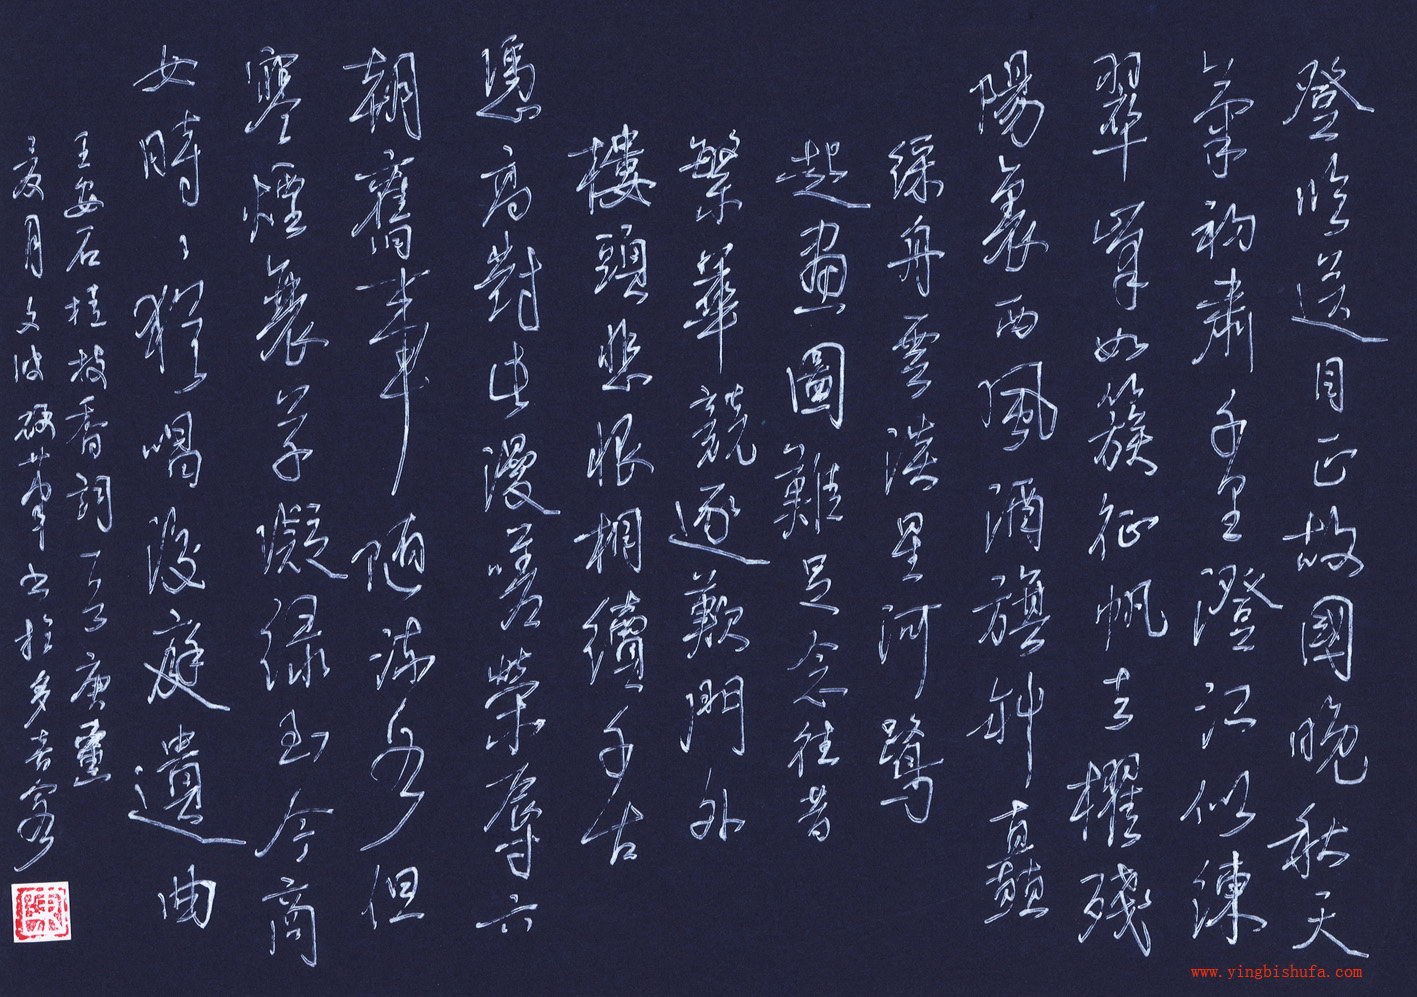 登臨送目正故國晚秋天
氣初肅千里澄江似練
翠峯如簇征帆去櫂殘
陽裏西風酒旗斜矗
綵舟雲淡星河鷺
起畫圖難足念往昔
繁華競逐歎門外
樓頭悲恨相續千古
憑高對此漫嗟榮辱六
朝舊事随流水但
寒煙衰草凝緑至今商
女時々猶唱後庭遺曲
王安石桂枝香詞一首庚寅
夏月文波硬筆書於
www.yingbishufa.com